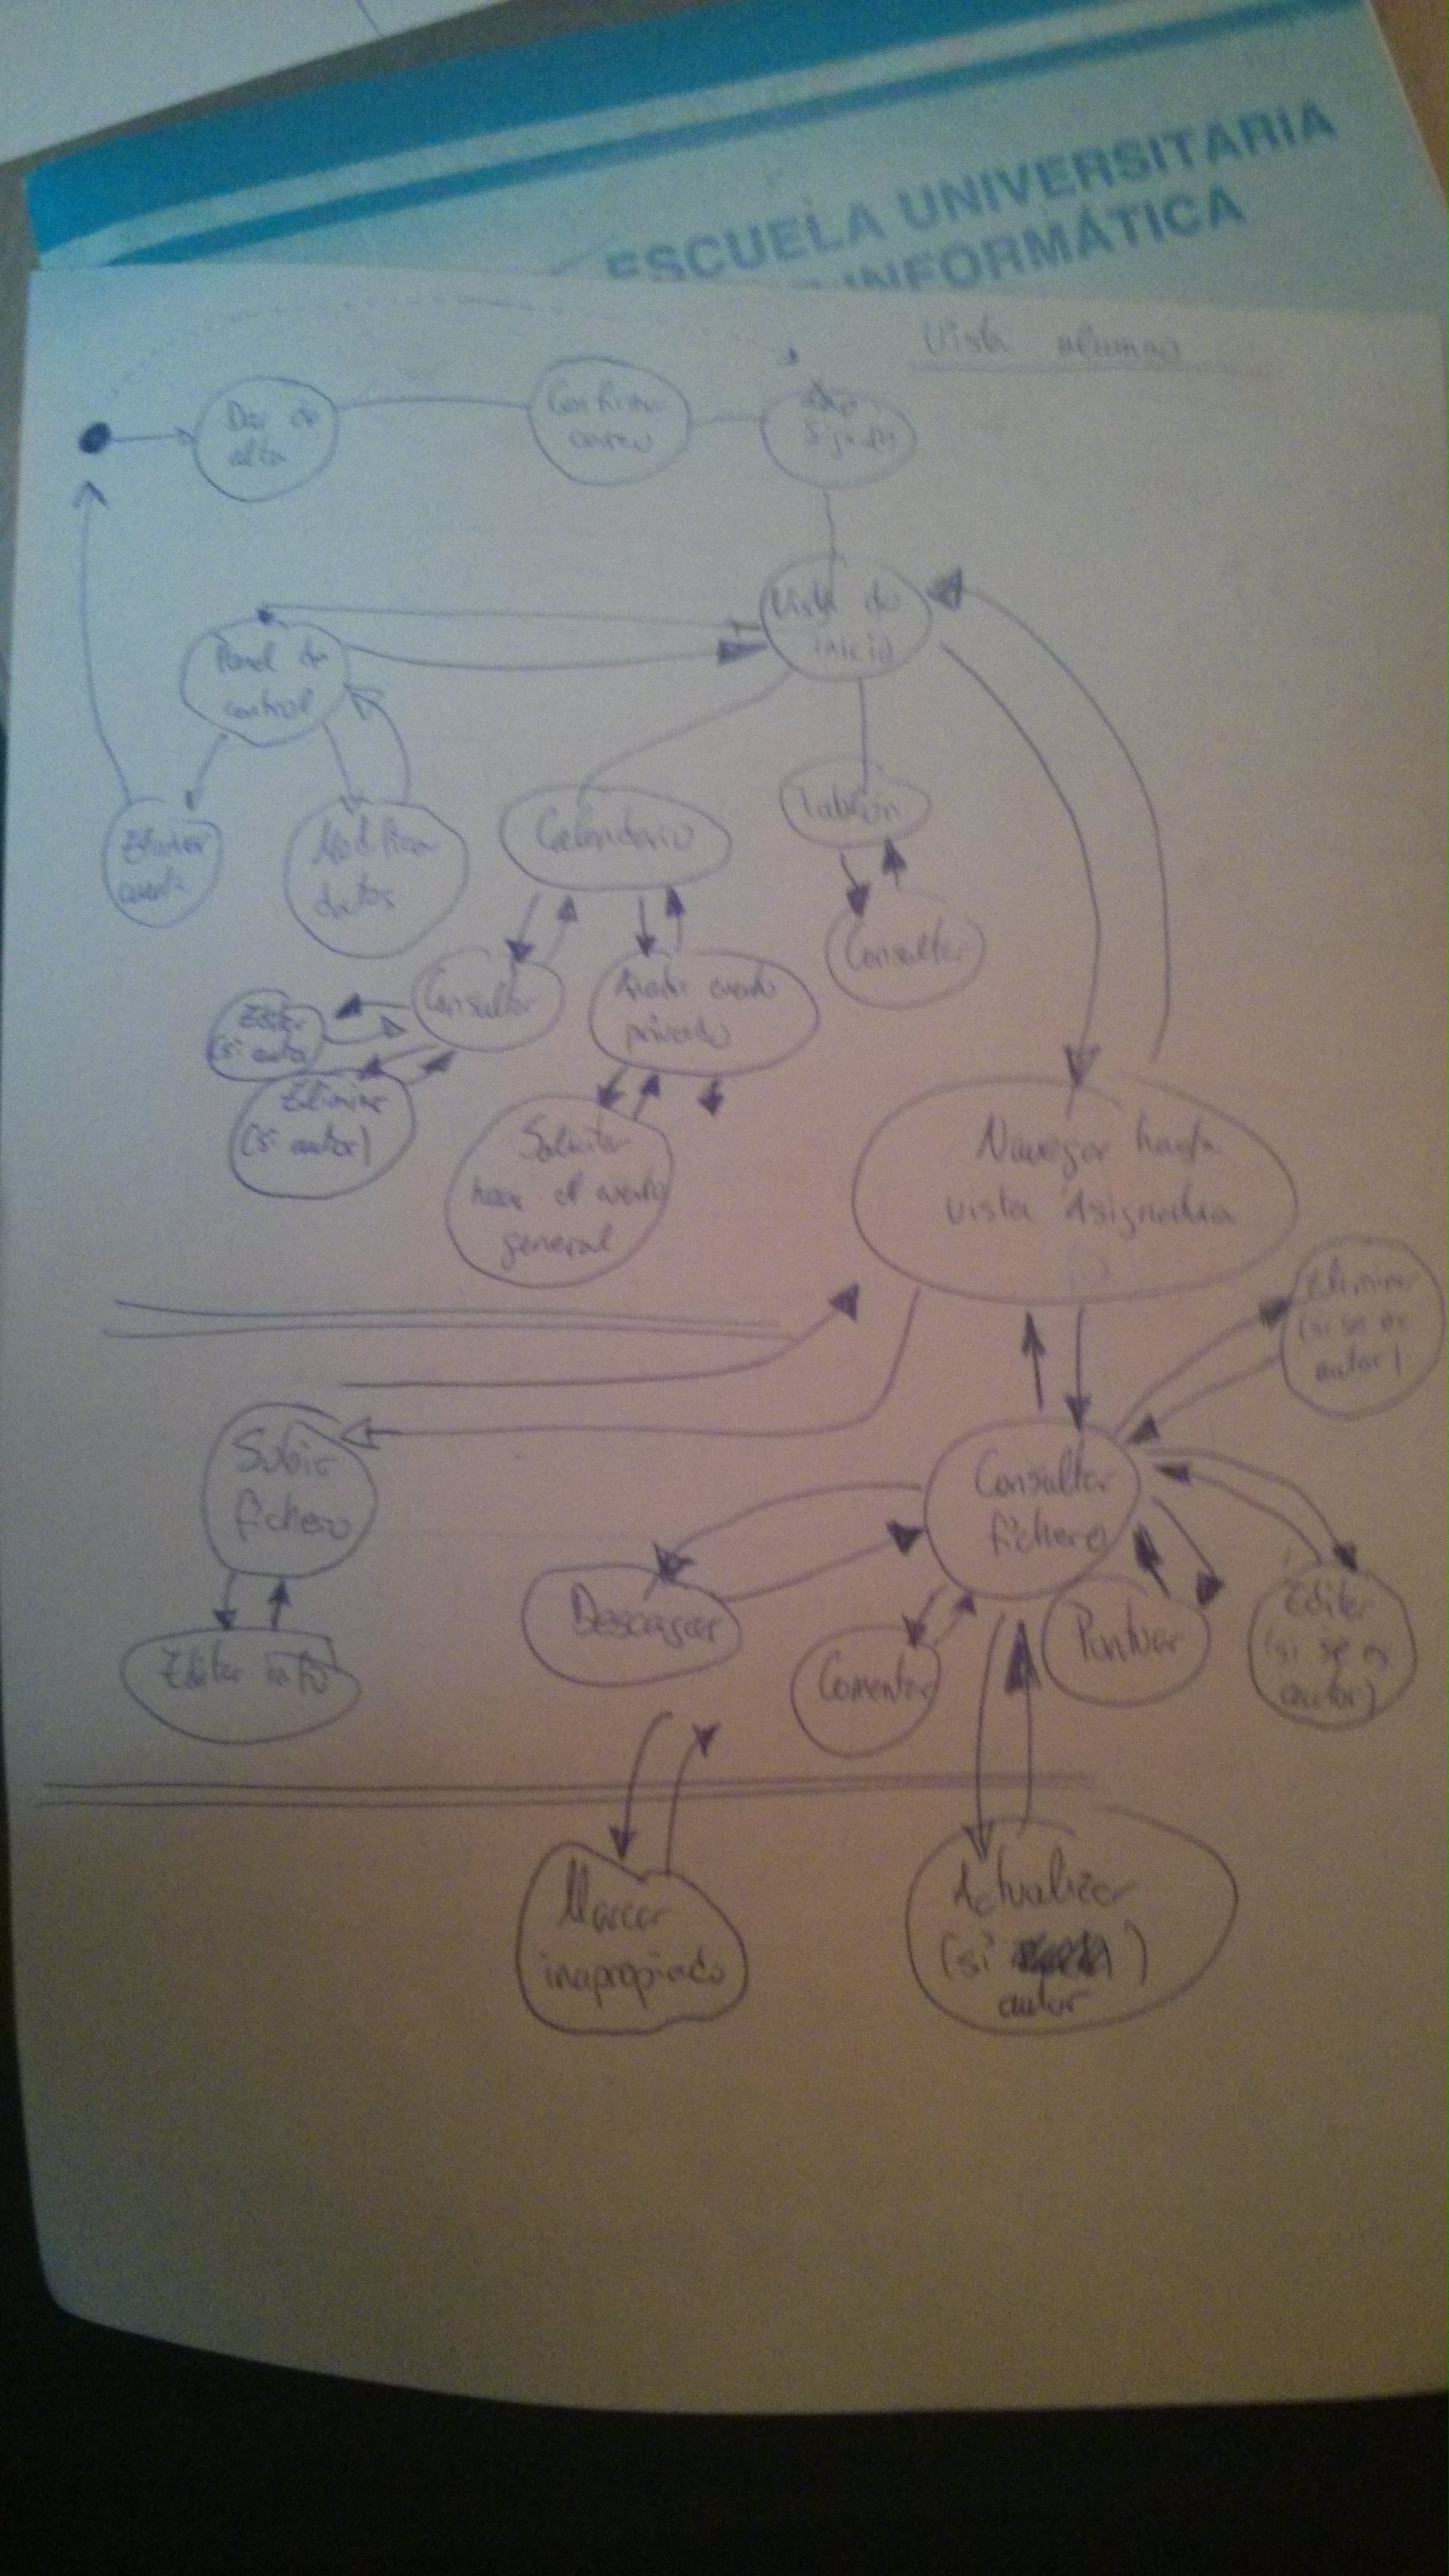 ESCUELA UNIVERSITARIA
INFORMÁTICA
Vista alumno
Dar de
alta
Confirmar
correo
Vista de
inicio
Panel de
control
cuenta
Modificar
datos
Calendario
Tablón
Consultar
Consultar
Añadir evento
privado
Editar
(si autor)
Eliminar
(si autor)
Solicitar
hacer el evento
general
Navegar hasta
vista Asignatura
Eliminar
(si se es
autor)
Subir
fichero
Consultar
fichero
Editar info
Descargar
Comentar
Puntuar
Editar
(si se es
autor)
Marcar
inapropiado
Actualizar
(si )
autor